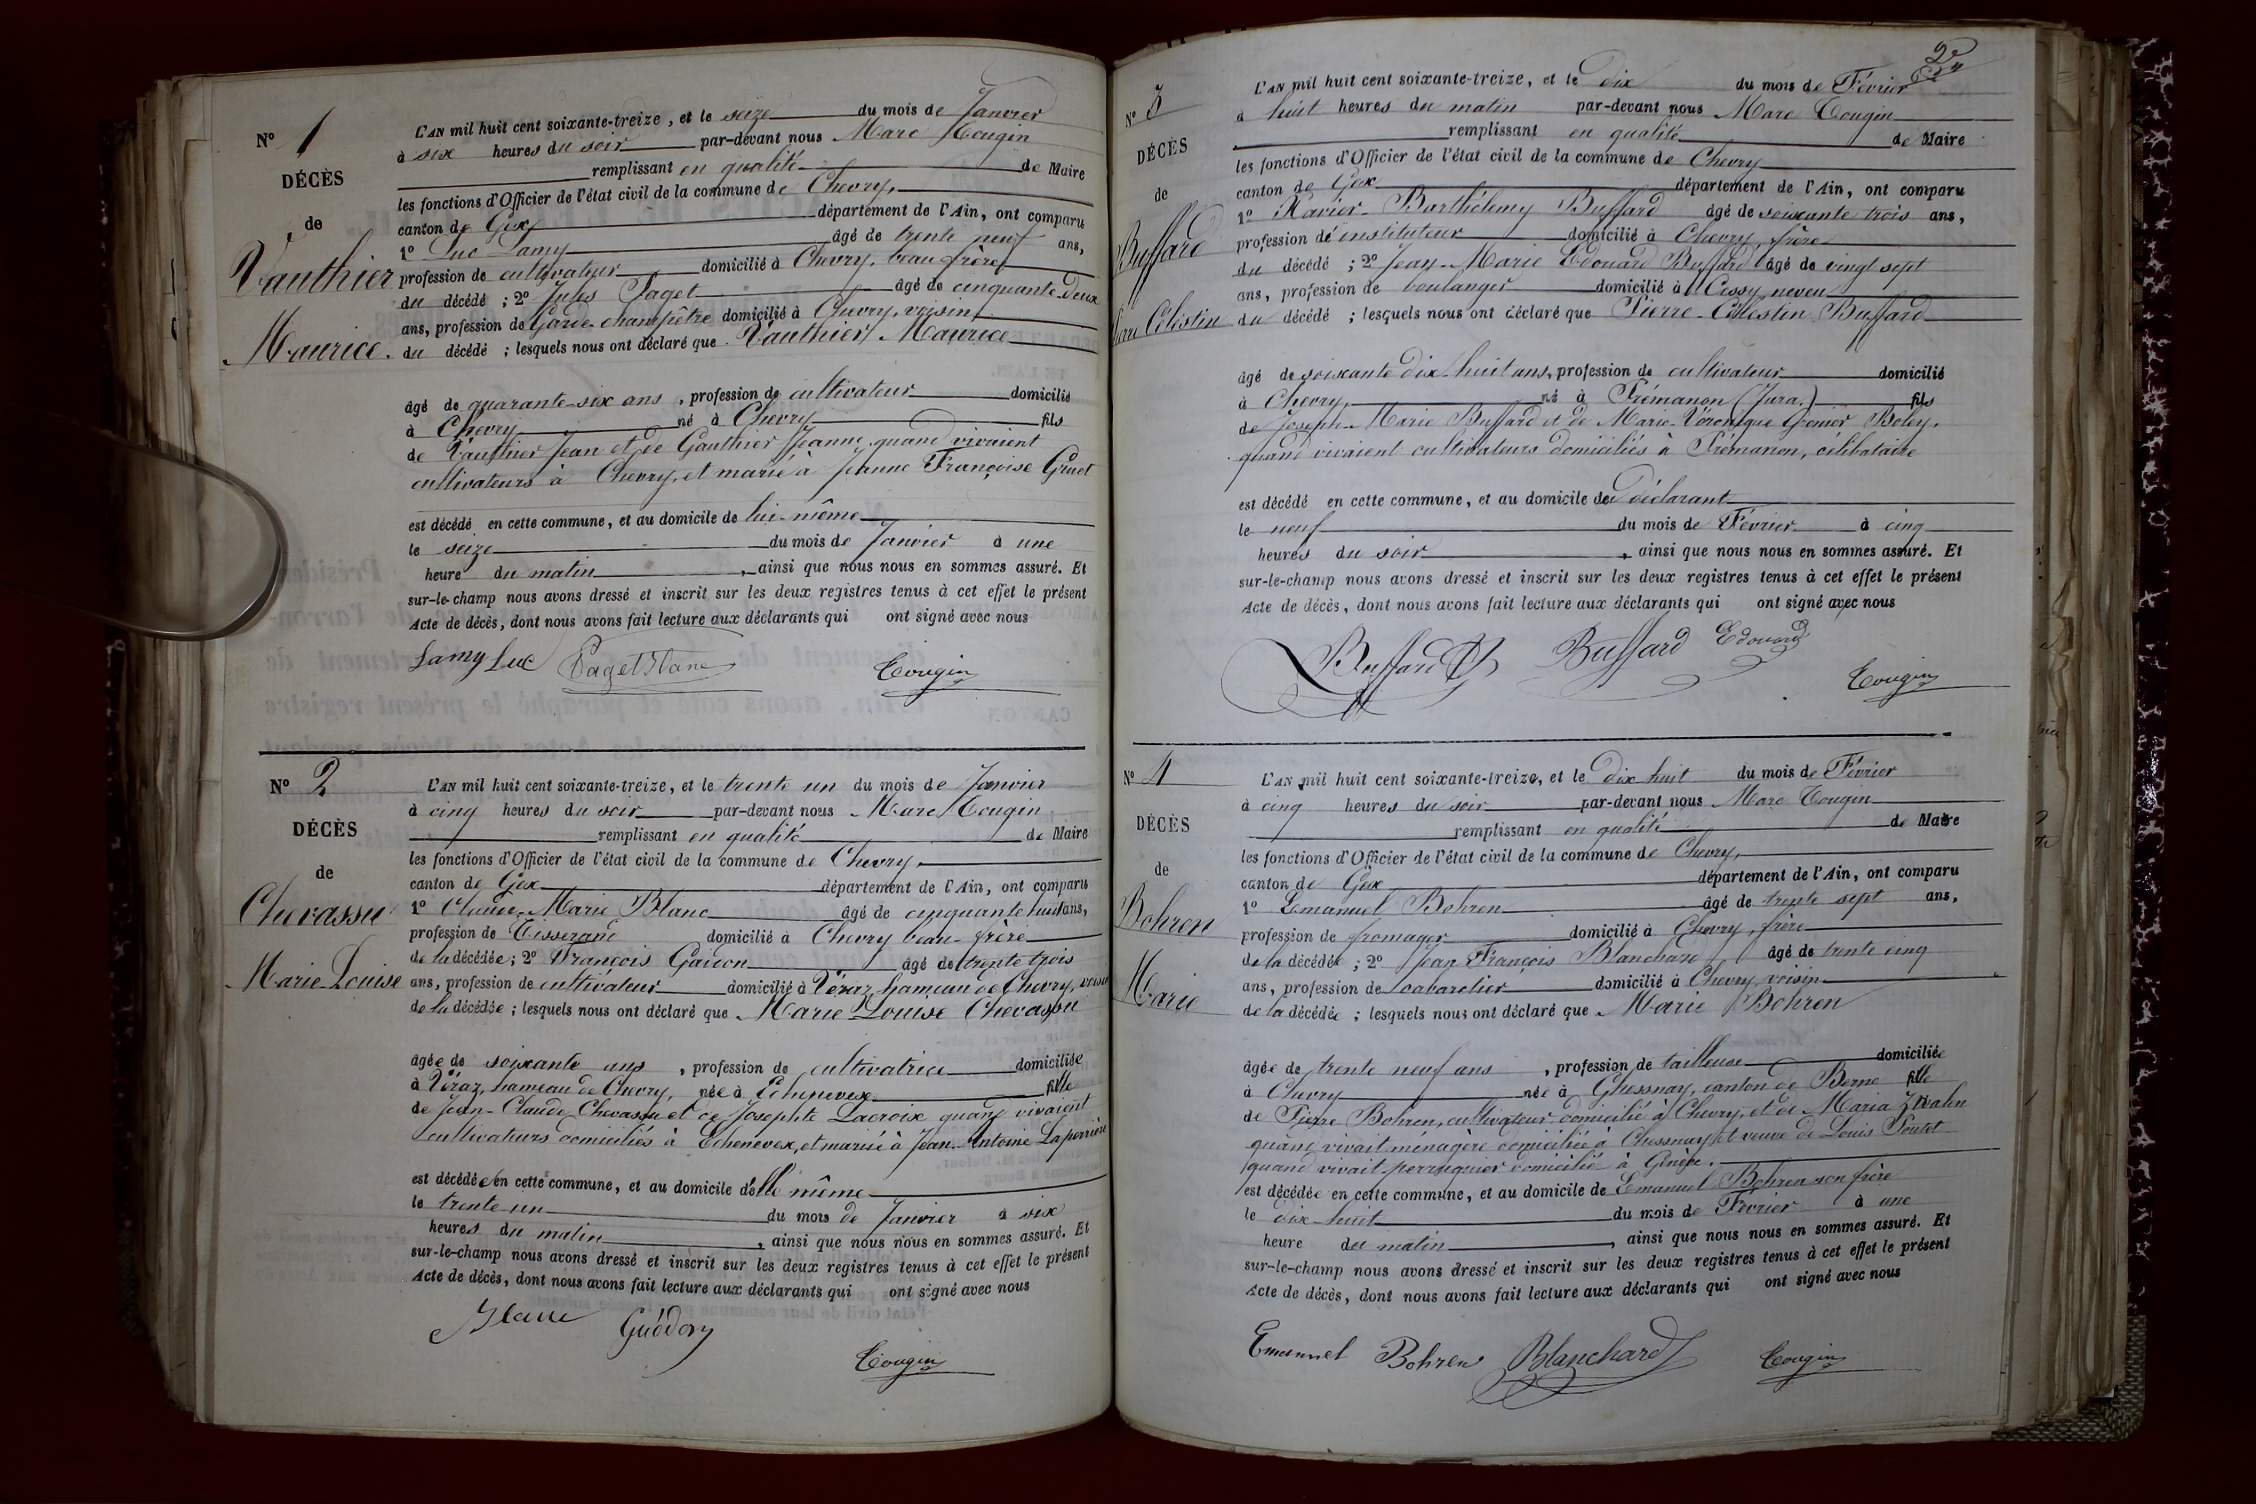 N° 1
DÉCÈS
de
Vauthier
Maurice.
L'AN mil huit cent soixante-treize, et le seize du mois de Janvier
à six heures du soir par-devant nous Marc Tougin
remplissant en qualité de Maire
les fonctions d'Officier de l'état civil de la commune de Chevry,
canton de Gex département de l'Ain, ont comparu
1° Luc Lamy âgé de trente neuf ans,
profession de cultivateur domicilié à Chevry, beau frère
du décédé ; 2° Jules Paget âgé de cinquante deux
ans, profession de Garde-champêtre domicilié à Chevry, voisin
du décédé ; lesquels nous ont déclaré que Vauthier Maurice
âgé de quarante-six ans, profession de cultivateur domicilié
à Chevry né à Chevry fils
de Vauthier Jean et de Gauthier Jeanne, quand vivaient
cultivateurs à Chevry, et marié à Jeanne Françoise Gruet
est décédé en cette commune, et au domicile de lui-même
le seize du mois de Janvier à une
heure du matin, ainsi que nous nous en sommes assuré. Et
sur-le-champ nous avons dressé et inscrit sur les deux registres tenus à cet effet le présent
Acte de décès, dont nous avons fait lecture aux déclarants qui ont signé avec nous
Lamy Luc Paget Tougin
N° 2
DÉCÈS
de
Chevassu
Marie-Louise
L'AN mil huit cent soixante-treize, et le trente un du mois de Janvier
à cinq heures du soir par-devant nous Marc Tougin
remplissant en qualité de Maire
les fonctions d'Officier de l'état civil de la commune de Chevry,
canton de Gex département de l'Ain, ont comparu
1° Claude-Marie Blanc âgé de cinquante huit ans,
profession de Tisserand domicilié à Chevry beau-frère
de la décédée ; 2° François âgé de trente trois
ans, profession de cultivateur domicilié à Véraz, hameau de Chevry, voisin
de la décédée ; lesquels nous ont déclaré que Marie Louise Chevassu
âgée de soixante ans, profession de cultivatrice domiciliée
à Véraz, hameau de Chevry, née à Echenevex fille
de Jean-Claude Chevassu et de Josephte Lacroix quand vivaient
cultivateurs domiciliés à Echenevex, et mariée à Jean-Antoine Laperrière
est décédée en cette commune, et au domicile d'elle même
le trente un du mois de Janvier à six
heures du matin, ainsi que nous nous en sommes assuré. Et
sur-le-champ nous avons dressé et inscrit sur les deux registres tenus à cet effet le présent
Acte de décès, dont nous avons fait lecture aux déclarants qui ont signé avec nous
Blanc Tougin
N° 3
DÉCÈS
de
Buffard
Pierre Célestin
L'AN mil huit cent soixante-treize, et le Dix du mois de Février
à huit heures du matin par-devant nous Marc Tougin
remplissant en qualité de Maire
les fonctions d'Officier de l'état civil de la commune de Chevry
canton de Gex département de l'Ain, ont comparu
1° Xavier-Barthélemy Buffard âgé de soixante trois ans,
profession d'instituteur domicilié à Chevry, frère
du décédé ; 2° Jean-Marie Edouard Buffard âgé de vingt sept
ans, profession de boulanger domicilié à Cessy, neveu
du décédé ; lesquels nous ont déclaré que Pierre-Célestin Buffard
âgé de soixante dix-huit ans, profession de cultivateur domicilié
à Chevry, né à Prémanon (Jura.) fils
de Joseph-Marie Buffard et de Marie-Véronique Grenier Boley,
quand vivaient cultivateurs domiciliés à Prémanon, célibataire
est décédé en cette commune, et au domicile du Déclarant
le neuf du mois de Février à cinq
heures du soir, ainsi que nous nous en sommes assuré. Et
sur-le-champ nous avons dressé et inscrit sur les deux registres tenus à cet effet le présent
Acte de décès, dont nous avons fait lecture aux déclarants qui ont signé avec nous
Buffard Buffard Edouard Tougin
N° 4
DÉCÈS
de
Bohren
Marie
L'AN mil huit cent soixante-treize, et le Dix huit du mois de Février
à cinq heures du soir par-devant nous Marc Tougin
remplissant en qualité de Maire
les fonctions d'Officier de l'état civil de la commune de Chevry,
canton de Gex département de l'Ain, ont comparu
1° Emanuel Bohren âgé de trente sept ans,
profession de fromager domicilié à Chevry, frère
de la décédée ; 2° Jean François Blanchard âgé de trente cinq
ans, profession de cabaretier domicilié à Chevry, voisin
de la décédée ; lesquels nous ont déclaré que Marie Bohren
âgée de trente neuf ans, profession de tailleuse domiciliée
à Chevry née à Ghessnay, canton de Berne fille
de Pierre Bohren, cultivateur domicilié à Chevry, et de Maria Zwahn
quand vivait ménagère domiciliée à Chessnay et veuve de Louis Poutet
quand vivait perruquier domicilié à Genève.
est décédée en cette commune, et au domicile de Emanuel Bohren son frère
le dix-huit du mois de Février à une
heure du matin, ainsi que nous nous en sommes assuré. Et
sur-le-champ nous avons dressé et inscrit sur les deux registres tenus à cet effet le présent
Acte de décès, dont nous avons fait lecture aux déclarants qui ont signé avec nous
Emanuel Bohren Blanchard Tougin